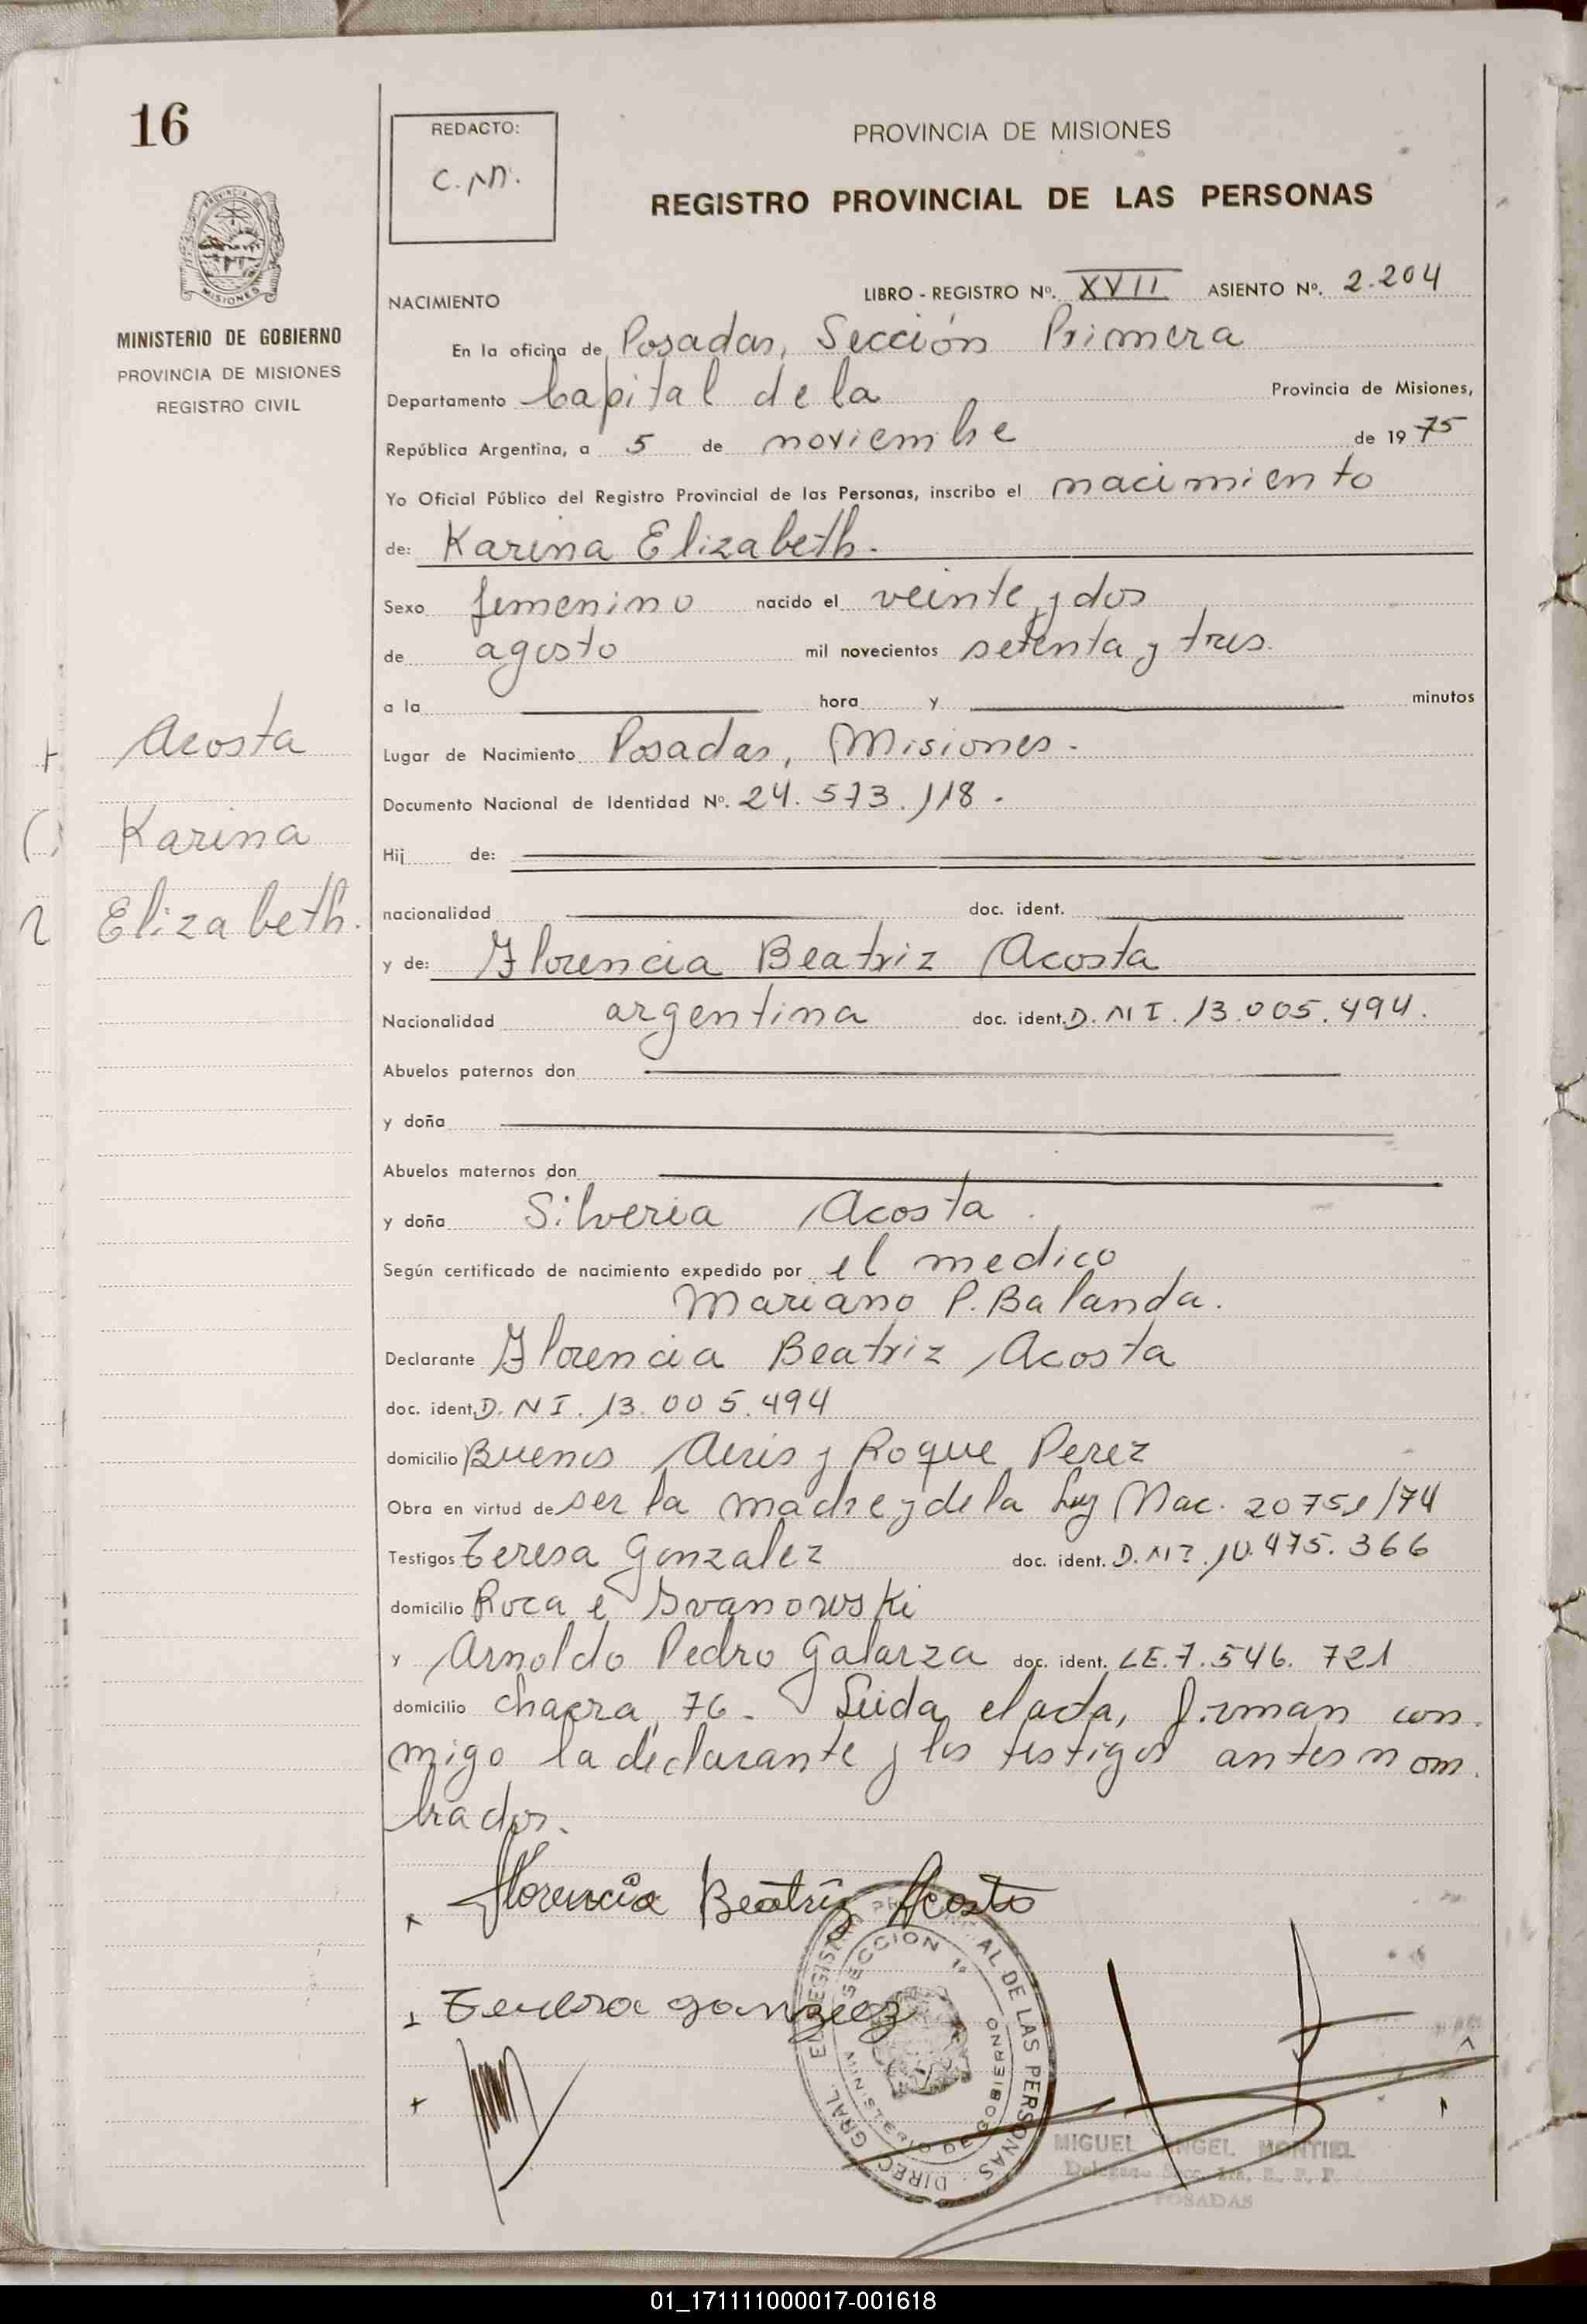 16
REDACTO:
C.M.
PROVINCIA DE MISIONES
REGISTRO PROVINCIAL DE LAS PERSONAS
PROVINCIA DE
MISIONES
MINISTERIO DE GOBIERNO
PROVINCIA DE MISIONES
REGISTRO CIVIL
NACIMIENTO
LIBRO - REGISTRO Nº. XVII ASIENTO Nº. 2.204
En la oficina de Posadas, Sección Primera
Departamento Capital de la Provincia de Misiones,
República Argentina, a 5 de noviembre de 1975
Yo Oficial Público del Registro Provincial de las Personas, inscribo el nacimiento
de: Karina Elizabeth.
Sexo femenino nacido el veinte y dos
de agosto mil novecientos setenta y tres.
a la hora y minutos
Acosta
Karina
Elizabeth.
Lugar de Nacimiento Posadas, Misiones.
Documento Nacional de Identidad Nº. 24.573.118.
Hij de:
nacionalidad doc. ident.
y de: Florencia Beatriz Acosta
Nacionalidad argentina doc. ident. D.NI. 13.005.494.
Abuelos paternos don
y doña
Abuelos maternos don
y doña Silveria Acosta.
Según certificado de nacimiento expedido por el medico
Mariano P. Balanda.
Declarante Florencia Beatriz Acosta
doc. ident. D.NI. 13.005.494
domicilio Buenos Aires y Roque Perez
Obra en virtud de ser la madre y de la Ley Nac. 20751/74
Testigos Teresa Gonzalez doc. ident. D.NI. 10.475.366
domicilio Roca e Ivanowski
y Arnoldo Pedro Galarza doc. ident. LE.7.546.721
domicilio chacra 76. Leida el acta, firman con
migo la declarante y los testigos antes nom
brados.
Florencia Beatriz Acosta
Teresa Gonzalez
DIREC. GRAL. DE LAS PERSONAS
SECCION 1ª
MINISTERIO DE GOBIERNO
MIGUEL ANGEL MONTIEL
POSADAS
01_171111000017-001618